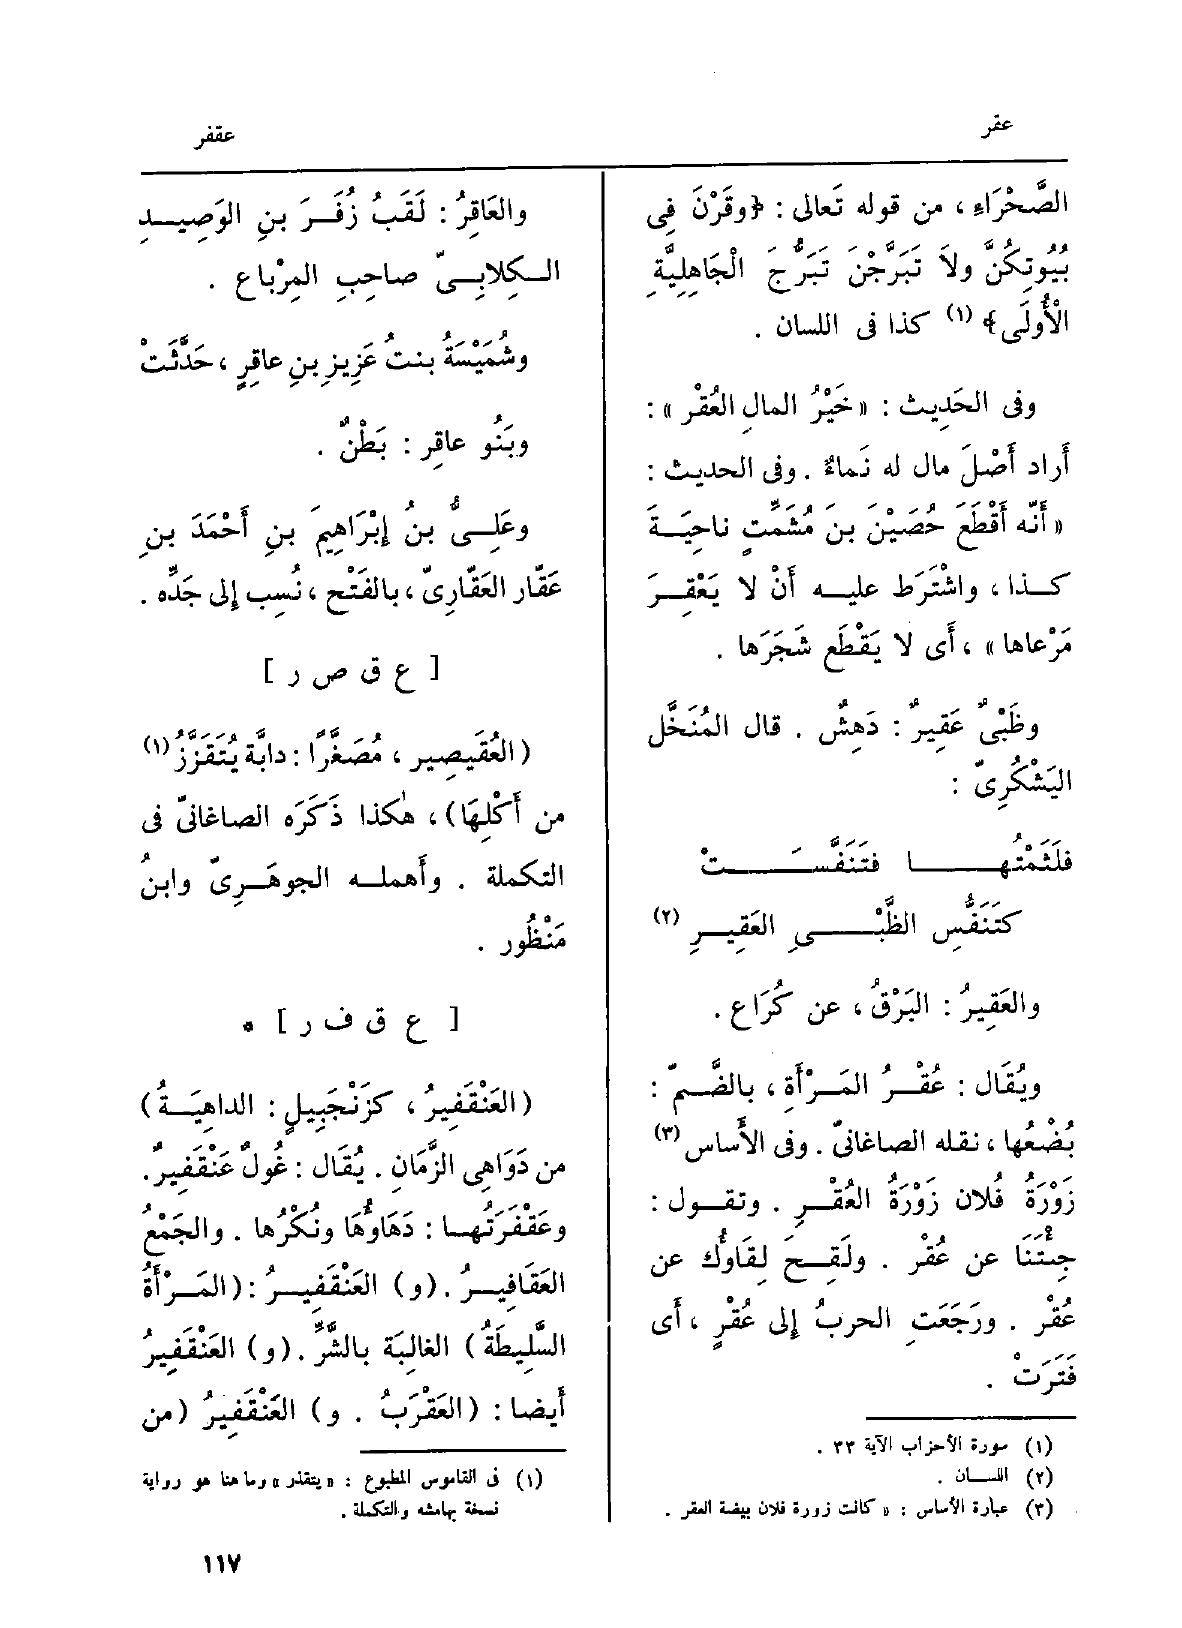 عقر
عقفر
الصَّحْرَاءِ ، من قوله تَعالى : ﴿وقَرْنَ فِى
بُيُوتِكُنَّ ولاَ تَبَرَّجْنَ تَبَرُّجَ الْجَاهِلِيَّةِ
الْأُولَى﴾ (١) كذا فى اللسان .
وفى الحَدِيث : « خَيْرُ المالِ العُقْر » :
أراد أَصْلَ مال له نَماءٌ . وفى الحديث :
« أَنَّه أَقْطَعَ حُصَيْنَ بنَ مُشَمِّتٍ ناحِيَةَ
كذا ، واشْتَرَط عليه أَنْ لا يَعْقِرَ
مَرْعاها » ، أَى لا يَقْطَع شَجَرَها .
وظَبْىٌ عَقِيرٌ : دَهِشٌ . قال المُنَخَّل
اليَشْكُرِىّ :
فلَثَمْتُها فتَنَفَّسَتْ
كتَنَفُّسِ الظَّبْىِ العَقِيرِ (٢)
والعَقِيرُ : البَرْقُ ، عن كُرَاع .
ويُقَال : عُقْرُ المَرْأَةِ ، بالضَّمّ :
بُضْعُها ، نقله الصاغانىّ . وفى الأَساس (٣)
زَوْرَةُ فُلان زَوْرَةُ العُقْرِ . وتقول :
جِئتَنَا عن عُقْر . ولَقِحَ لِقَاؤُك عن
عُقْر . ورَجَعَتِ الحربُ إلى عُقْرٍ ، أَى
فَتَرَتْ .
(١) سورة الأحزاب الآية ٣٣ .
(٢) اللسان .
(٣) عبارة الأساس : « كانت زورة فلان بيضة العقر .
والعَاقِرُ : لَقَبُ زُفَرَ بنِ الوَصِيدِ
الكِلابِىّ صاحِبِ المِرْباع .
وشُمَيْسَةُ بنتُ عَزِيزِ بنِ عاقِرٍ ، حَدَّثَتْ
وبَنُو عاقِر : بَطْنٌ .
وعَلِىُّ بنُ إبْرَاهِيمَ بنِ أَحْمَدَ بنِ
عَقَّار العَقَّارِىّ ، بالفَتْح ، نُسِب إلى جَدِّه .
[ ع ق ص ر ]
( العُقَيصِير ، مُصَغَّرًا : دابَّة يُتَقَزَّزُ (١)
من أَكْلِهَا ) ، هٰكذا ذَكَرَه الصاغانىّ فى
التكملة . وأَهمله الجوهَرِىّ وابنُ
مَنْظُور .
[ ع ق ف ر ] *
( العَنْقَفِيرُ ، كزَنْجَبِيلٍ : الداهِيَةُ )
من دَوَاهِى الزَّمَانِ . يُقَال : غُولٌ عَنْقَفِيرٌ .
وعَقْفَرَتُها : دَهَاؤُهَا ونُكْرُها . والجَمْعُ
العَقَافِيرُ . ( و ) العَنْقَفِيرُ : ( المَرْأَةُ
السَّلِيطَةُ ) الغالِبَة بالشَّرِّ . ( و ) العَنْقَفِيرُ
أَيضا : ( العَقْرَبُ . و ) العَنْقَفِيرُ ( من
(١) فى القاموس المطبوع : « يتقذر » وما هنا هو رواية
نسخة بهامشه والتكملة .
١١٧